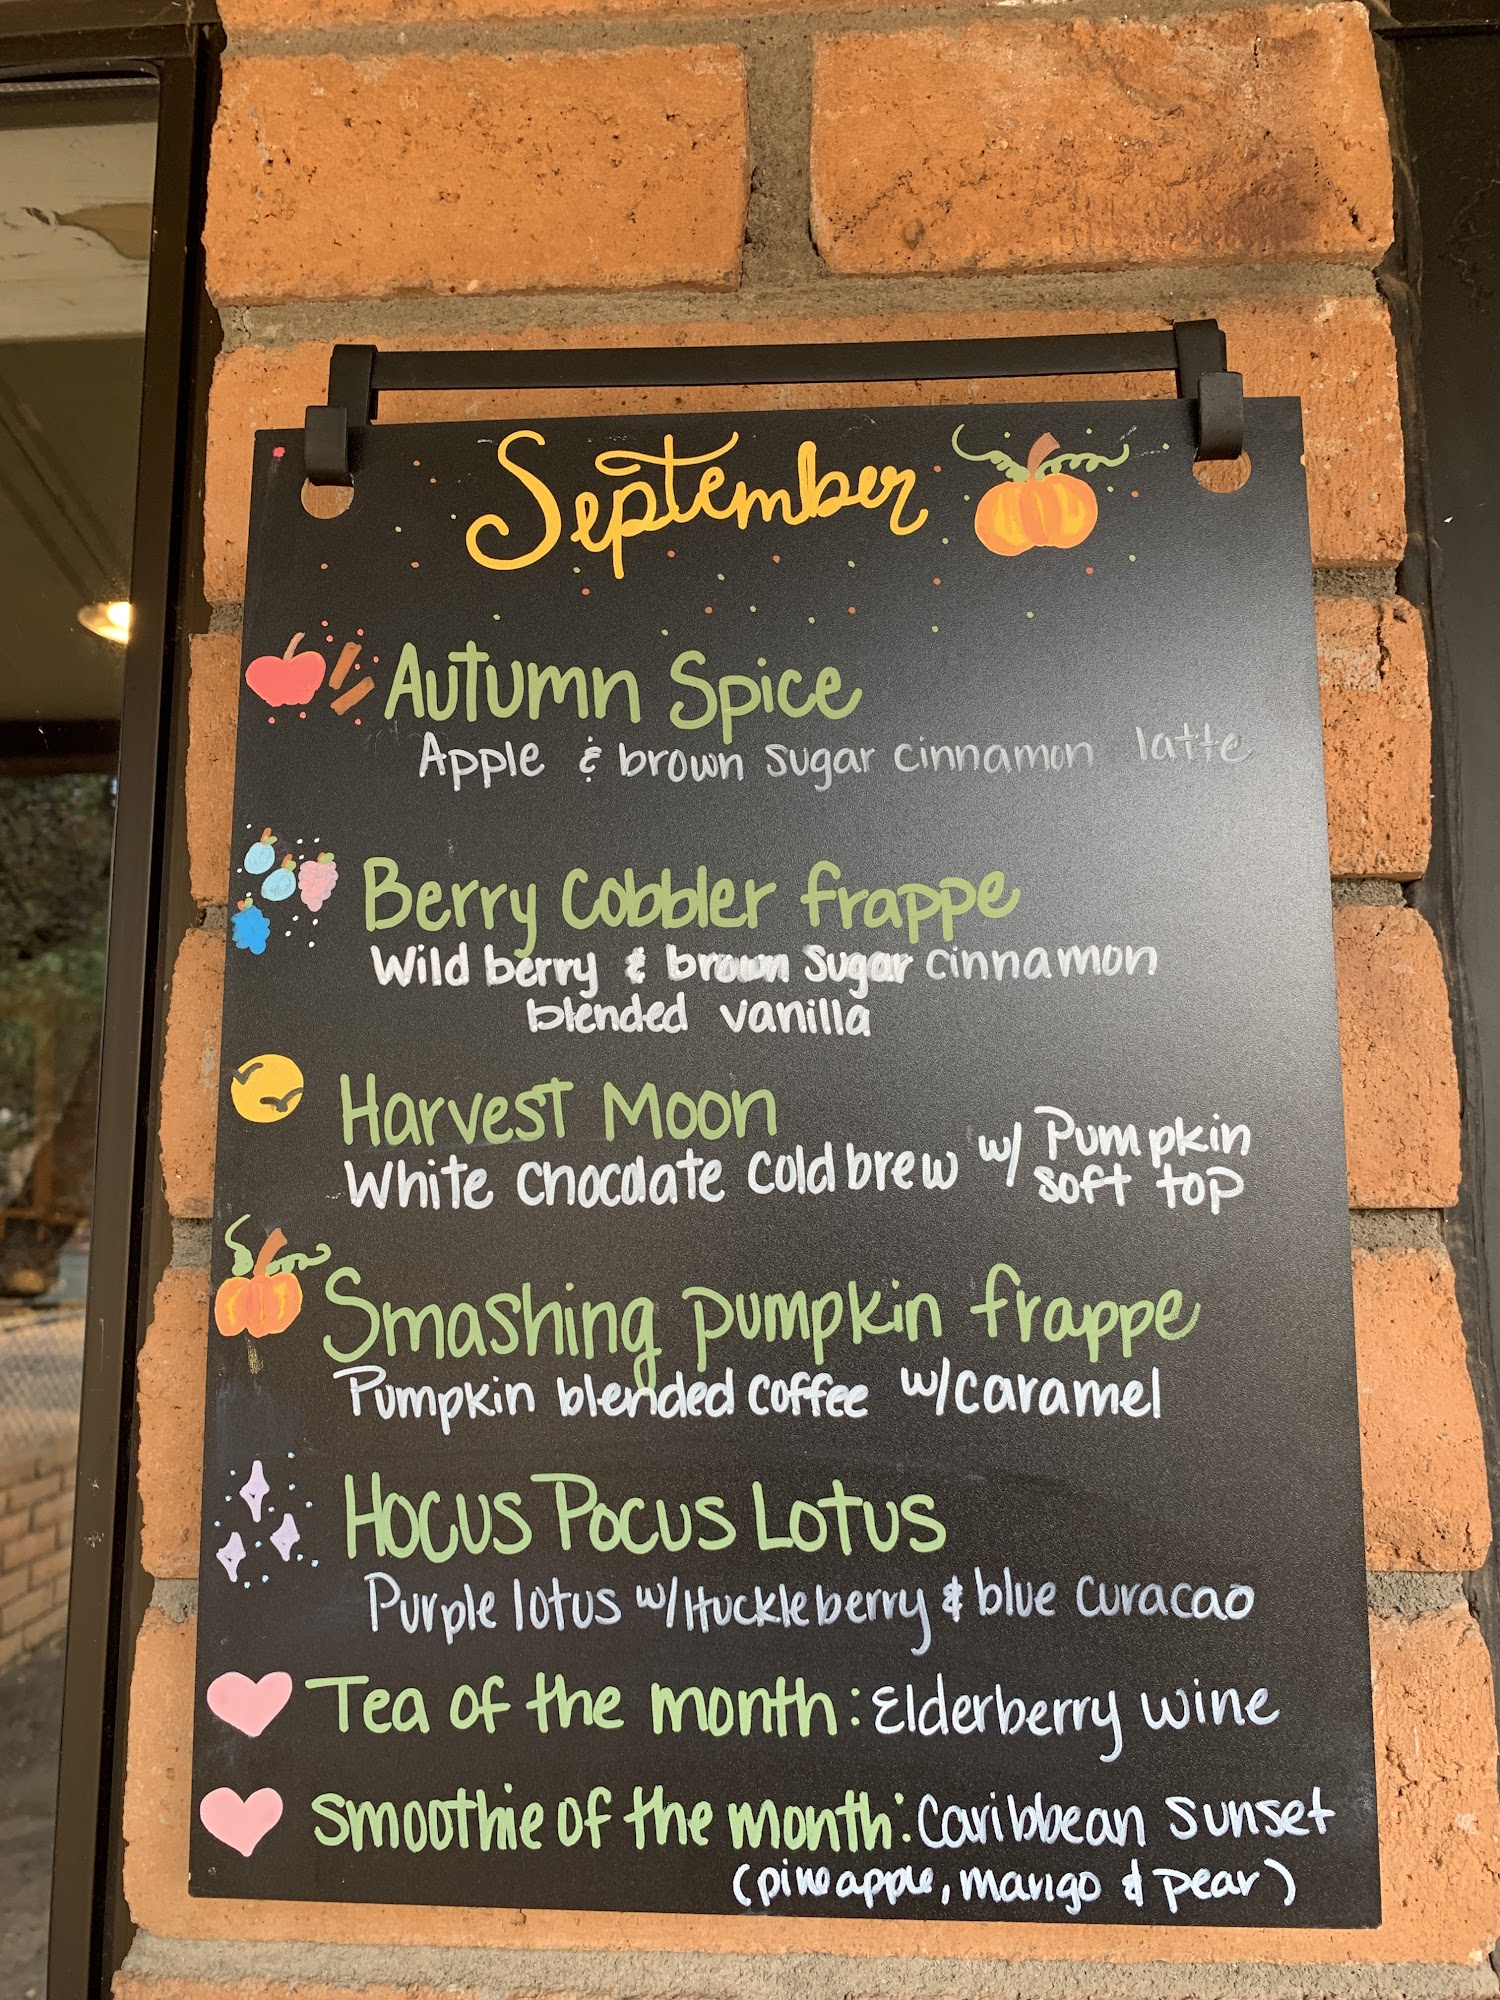 September
Autumn Spice
Apple & brown sugar cinnamon latte
Berry Cobbler frappe
Wild berry & brown sugar cinnamon
blended vanilla
Harvest Moon
White chocolate cold brew w/ Pumpkin
soft top
Smashing pumpkin frappe
Pumpkin blended coffee w/caramel
Hocus Pocus Lotus
Purple lotus w/Huckleberry & blue curacao
Tea of the month: Elderberry wine
Smoothie of the month: Caribbean Sunset
(pineapple, mango & pear)